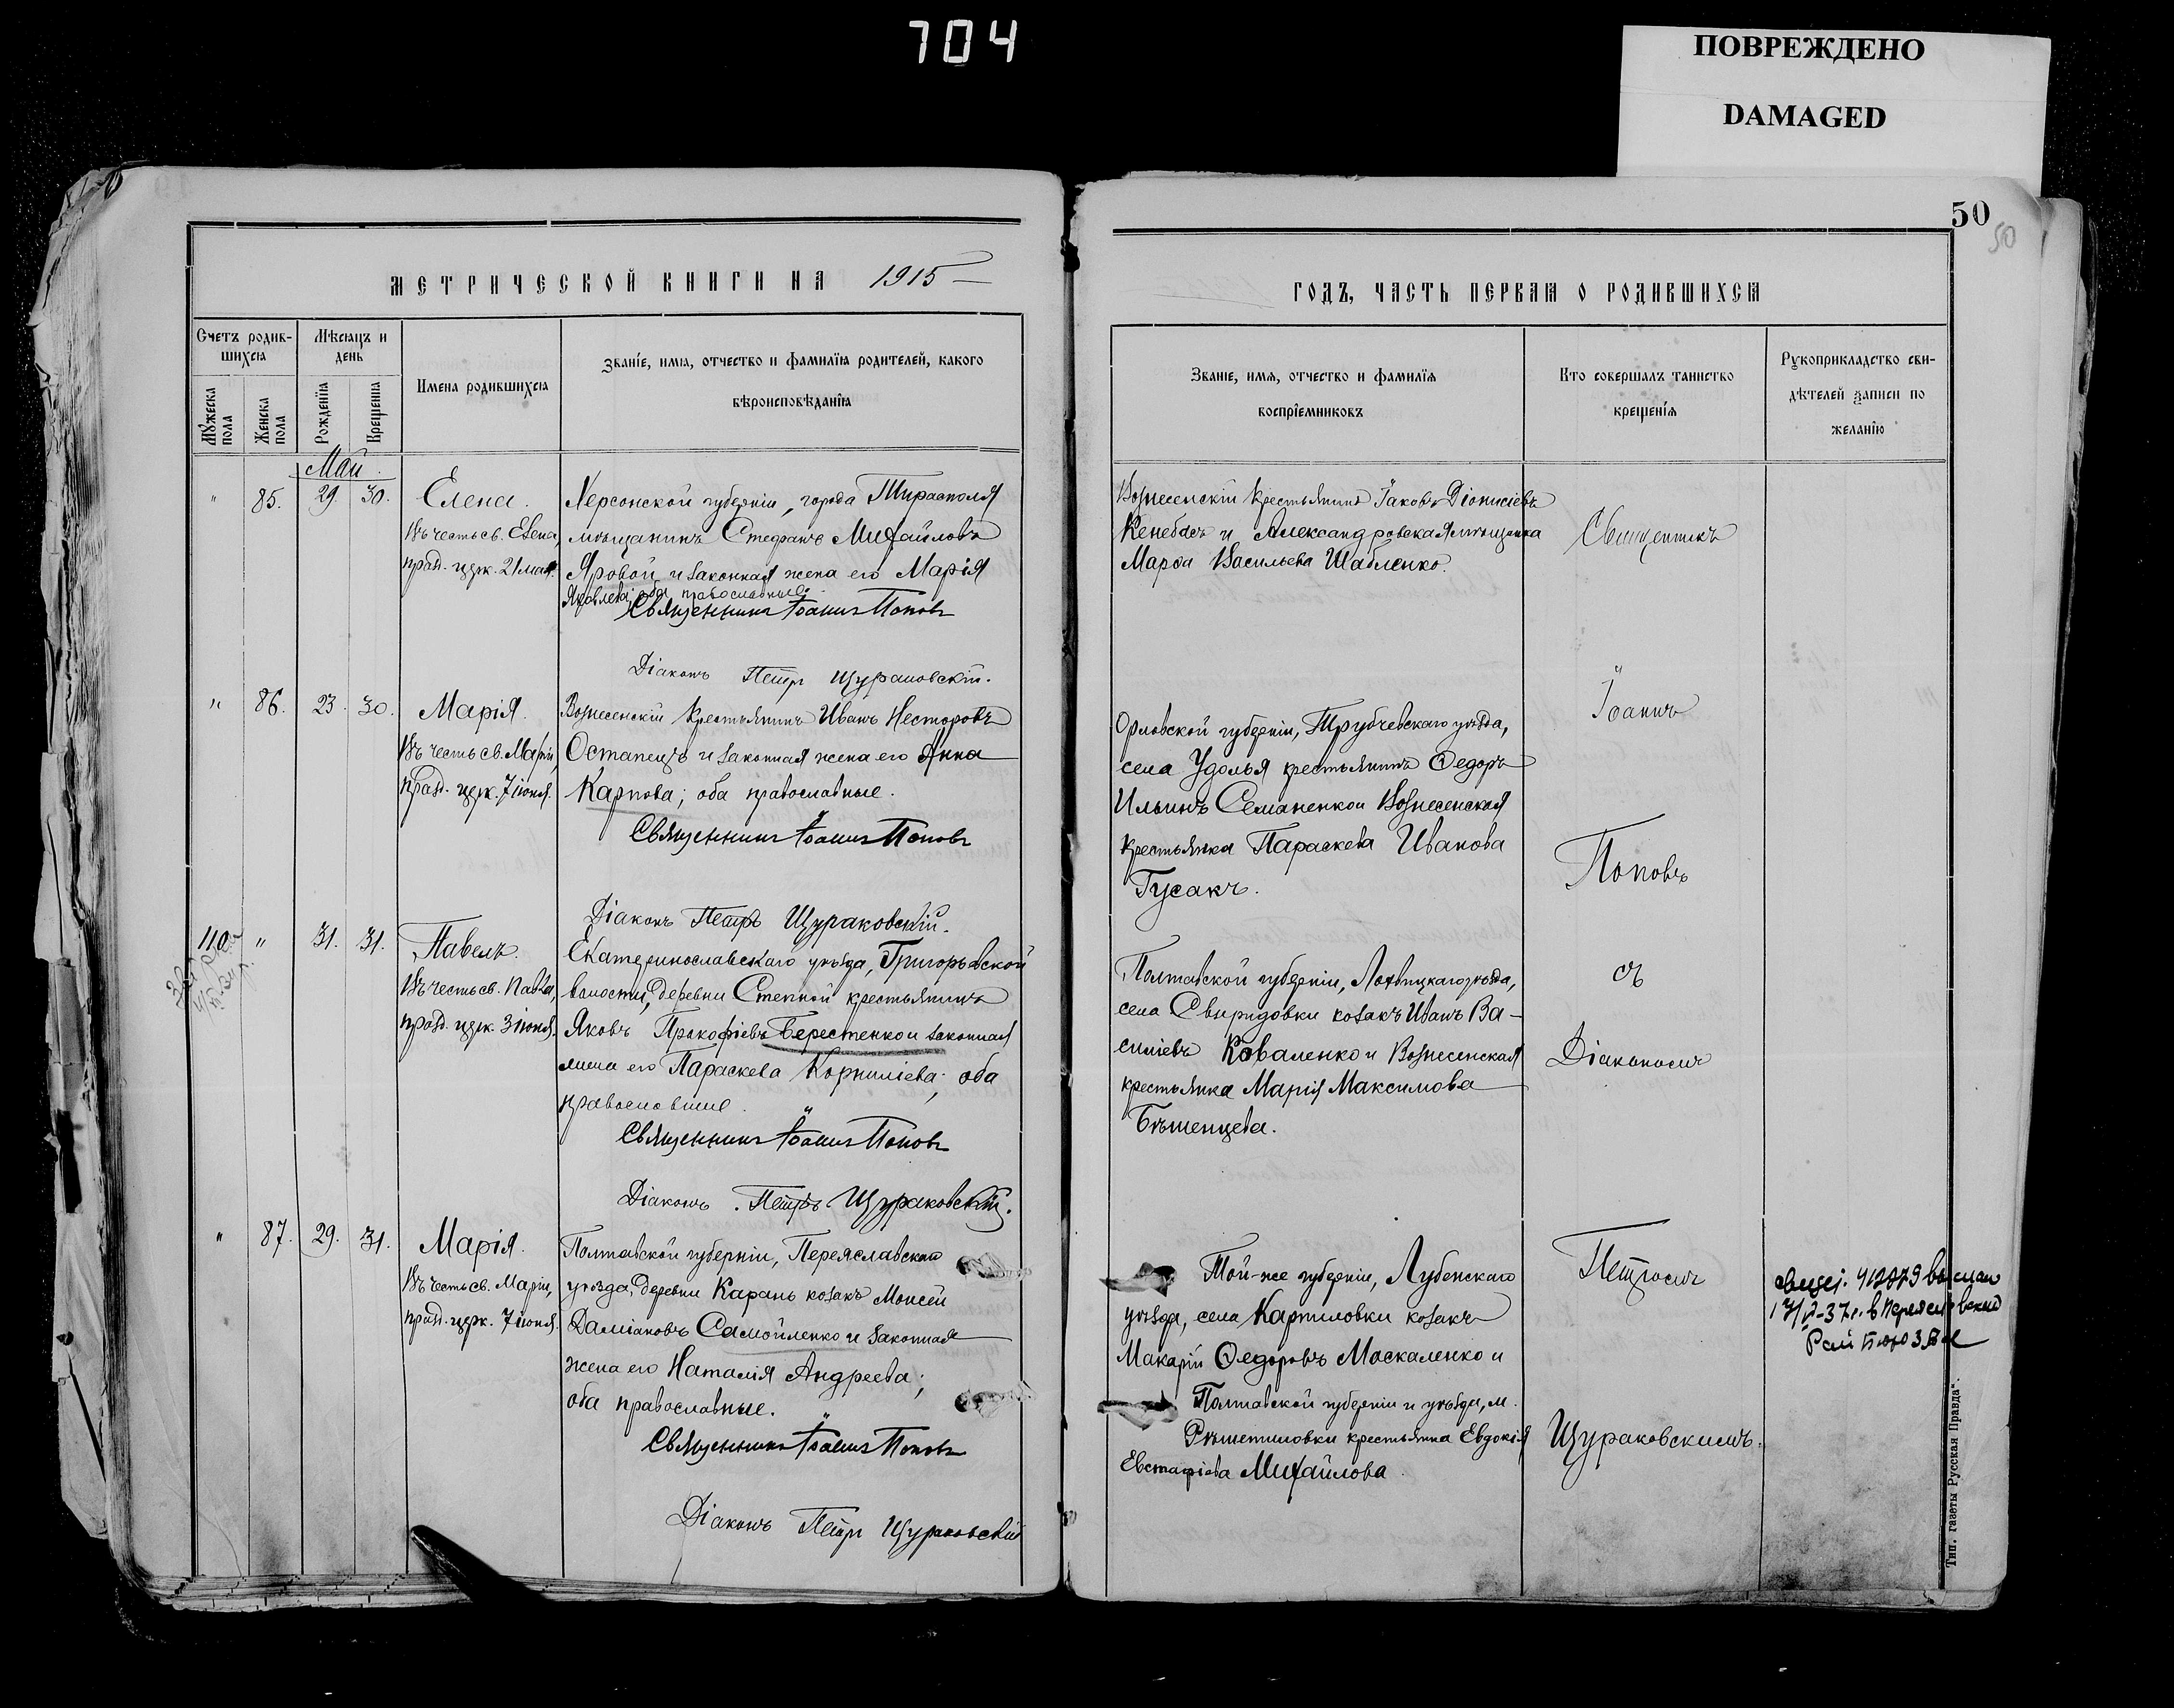 704
ПОВРЕЖДЕНО
DAMAGED
50
50
МЕТРИЧЕСКОЙ КНИГИ НА 1915
Счетъ родившихся
Мѣсяцъ и день
Имена родившихся
Званіе, имя, отчество и фамилія родителей, какого
вѣроисповѣданія
Мужеска пола
Женска пола
Рожденія
Крещенія
Май.
" 85. 29. 30. Елена.
Въ честь св. Елены,
празд. церк. 21 мая.
Херсонской губерніи, города Тирасполя
мѣщанинъ Стефанъ Михайловъ
Яровой и законная жена его Марія
Яковлева; оба православные.
Священникъ Іоаннъ Поповъ
Діаконъ Петръ Щураковскій.
" 86. 23. 30. Марія.
Въ честь св. Маріи,
празд. церк. 7 іюня.
Вознесенскій крестьянинъ Иванъ Несторовъ
Остапецъ и законная жена его Анна
Карпова; оба православные.
Священникъ Іоаннъ Поповъ
Діаконъ Петръ Щураковскій.
110. " 31. 31. Павелъ.
Въ честь св. Павла,
празд. церк. 3 іюня.
Екатеринославскаго уѣзда, Григорьевской
волости, деревни Степной крестьянинъ
Яковъ Прокофіевъ Берестенко и законная
жена его Параскева Корниліева; оба
православные.
Священникъ Іоаннъ Поповъ
Діаконъ Петръ Щураковскій.
" 87. 29. 31. Марія.
Въ честь св. Маріи,
празд. церк. 7 іюня.
Полтавской губерніи, Переяславскаго
уѣзда, деревни Карань козакъ Моисей
Даміановъ Самойленко и законная
жена его Наталія Андреева;
оба православные.
Священникъ Іоаннъ Поповъ
Діаконъ Петръ Щураковскій
ГОДЪ, ЧАСТЬ ПЕРВАЯ О РОДИВШИХСЯ
Званіе, имя, отчество и фамилія
воспріемниковъ
Кто совершалъ таинство
крещенія
Рукоприкладство сви-
дѣтелей записи по
желанію
Вознесенскій крестьянинъ Іаковъ Діонисіевъ
Кенебасъ и Александровская мѣщанка
Марфа Васильева Шабленко.
Орловской губерніи, Трубчевскаго уѣзда,
села Удолья крестьянинъ Ѳедоръ
Ильинъ Семаненко и Вознесенская
крестьянка Параскева Иванова
Гусакъ.
Полтавской губерніи, Лохвицкаго уѣзда,
села Свиридовки козакъ Иванъ Ва-
силіевъ Коваленко и Вознесенская
крестьянка Марія Максимова
Бѣшенцева.
Той-же губерніи, Лубенскаго
уѣзда, села Карпиловки козакъ
Макарій Ѳедоровъ Москаленко и
Полтавской губерніи и уѣзда, м.
Рѣшетиловки крестьянка Евдокія
Евстафіева Михайлова.
Священникъ
Іоаннъ
Поповъ
съ
Діакономъ
Петромъ
Щураковскимъ.
в Переяславский
Рай Бюро ЗАГС
Тип. газеты Русская Правда".